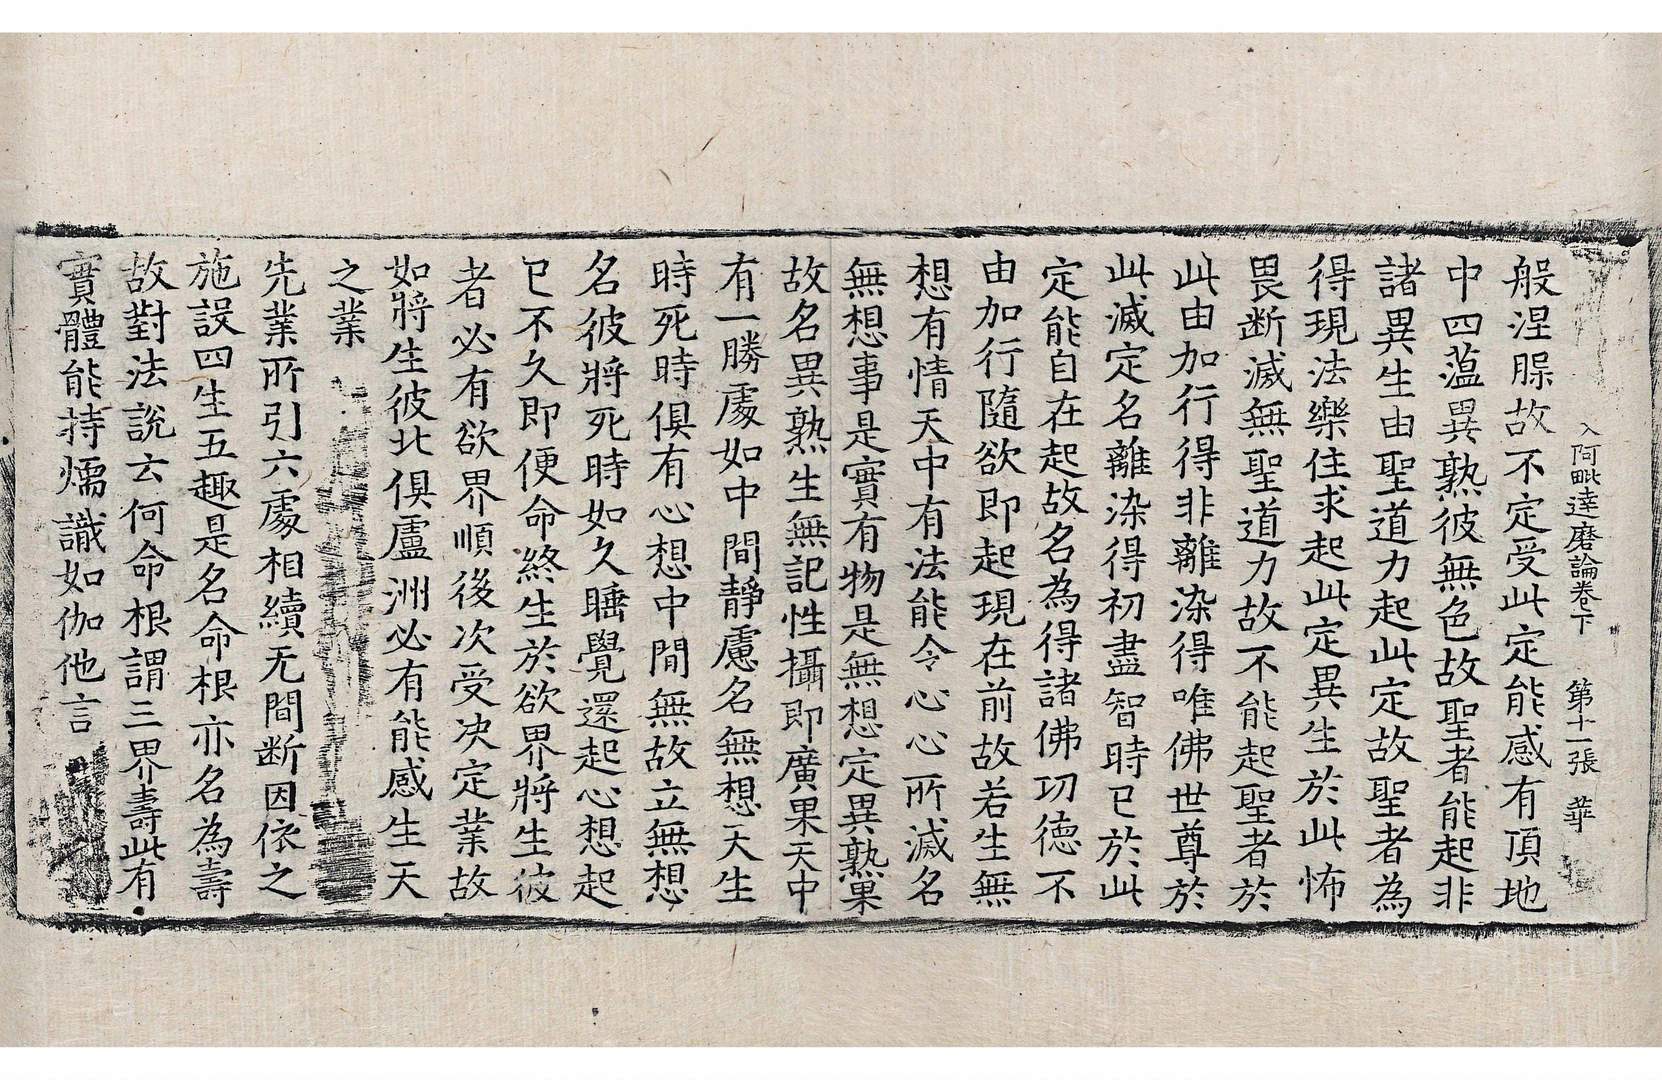 入阿毗達磨論卷下 第十一張 華
般涅脵故不定受此定能感有頂地
中四薀異熟彼無色故聖者能起非
諸異生由聖道力起此定故聖者為
得現法樂住求起此定異生於此怖
畏断滅無聖道力故不能起聖者於
此由加行得非離染得唯佛世尊於
此滅定名離染得初盡智時已於此
定能自在起故名為得諸佛㓛德不
由加行隨欲即起現在前故若生無
想有情天中有法能令心心所滅名
無想事是實有物是無想定異熟果
故名異熟生無記性攝即廣果天中
有一勝處如中間靜慮名無想天生
時死時俱有心想中間無故立無想
名彼將死時如久睡覺還起心想起
已不久即便命終生於欲界將生彼
者必有欲界順後次受决定業故
如將生彼北俱盧洲必有能感生天
之業
先業所引六處相續无間断因依之
施設四生五趣是名命根亦名為壽
故對法說云何命根謂三界壽此有
實體能持煗識如伽他言